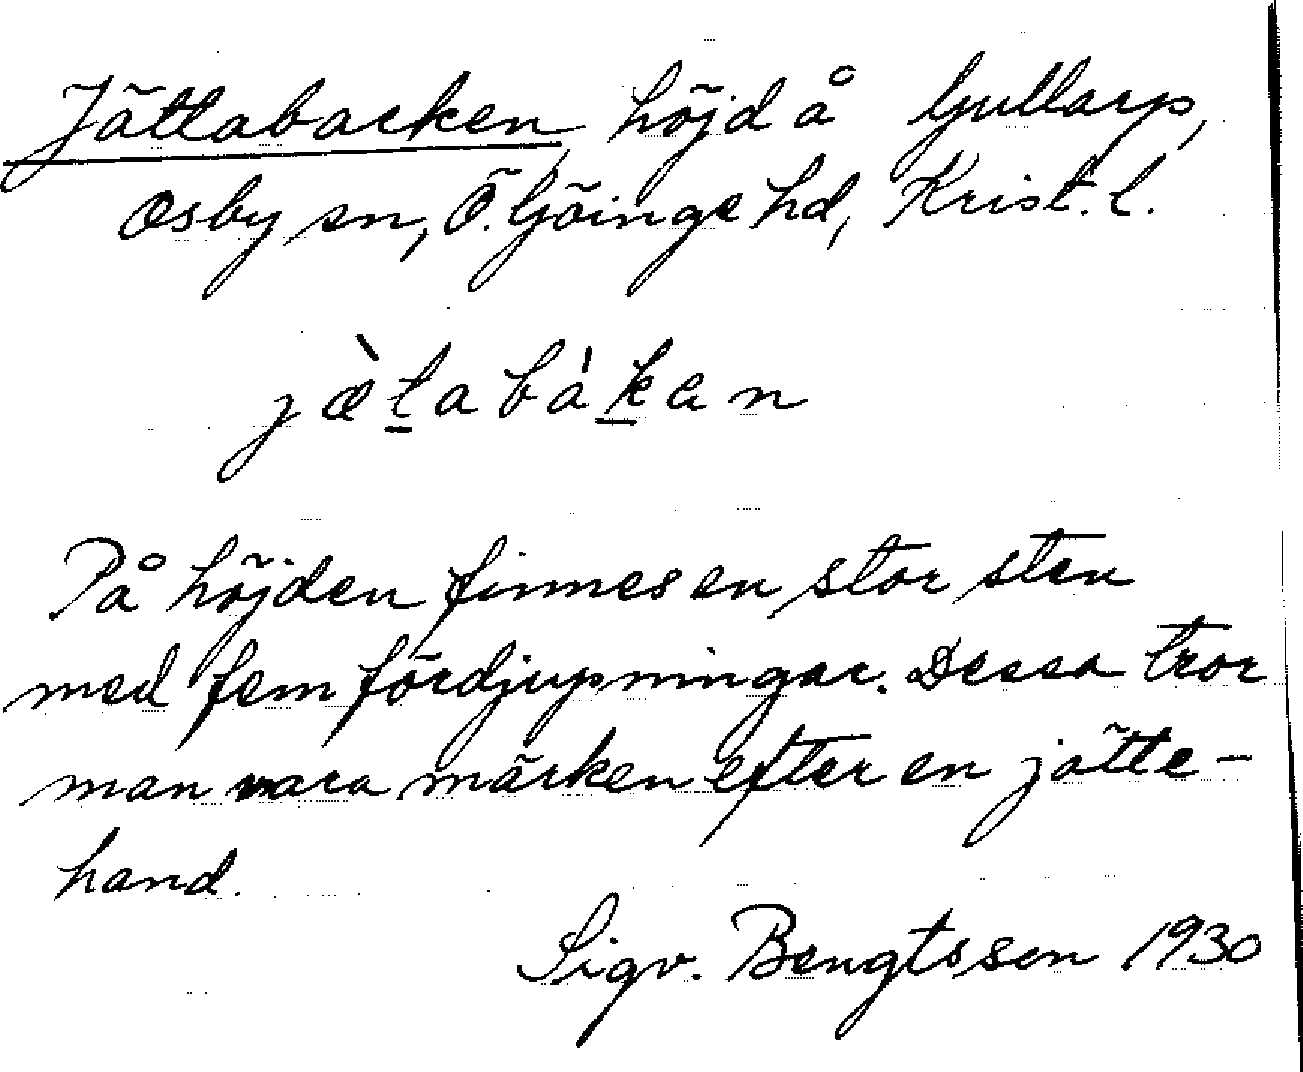 Jättabacken, höjd å Gullarp,
Osby sn, Ö. Göinge hd, Krist. l.
jæ̀t̲abák̲en
På höjden finnes en stor sten
med fem fördjupningar. Dessa tror
man vara märken efter en jätte-
hand.
Sigv. Bengtsson 1930